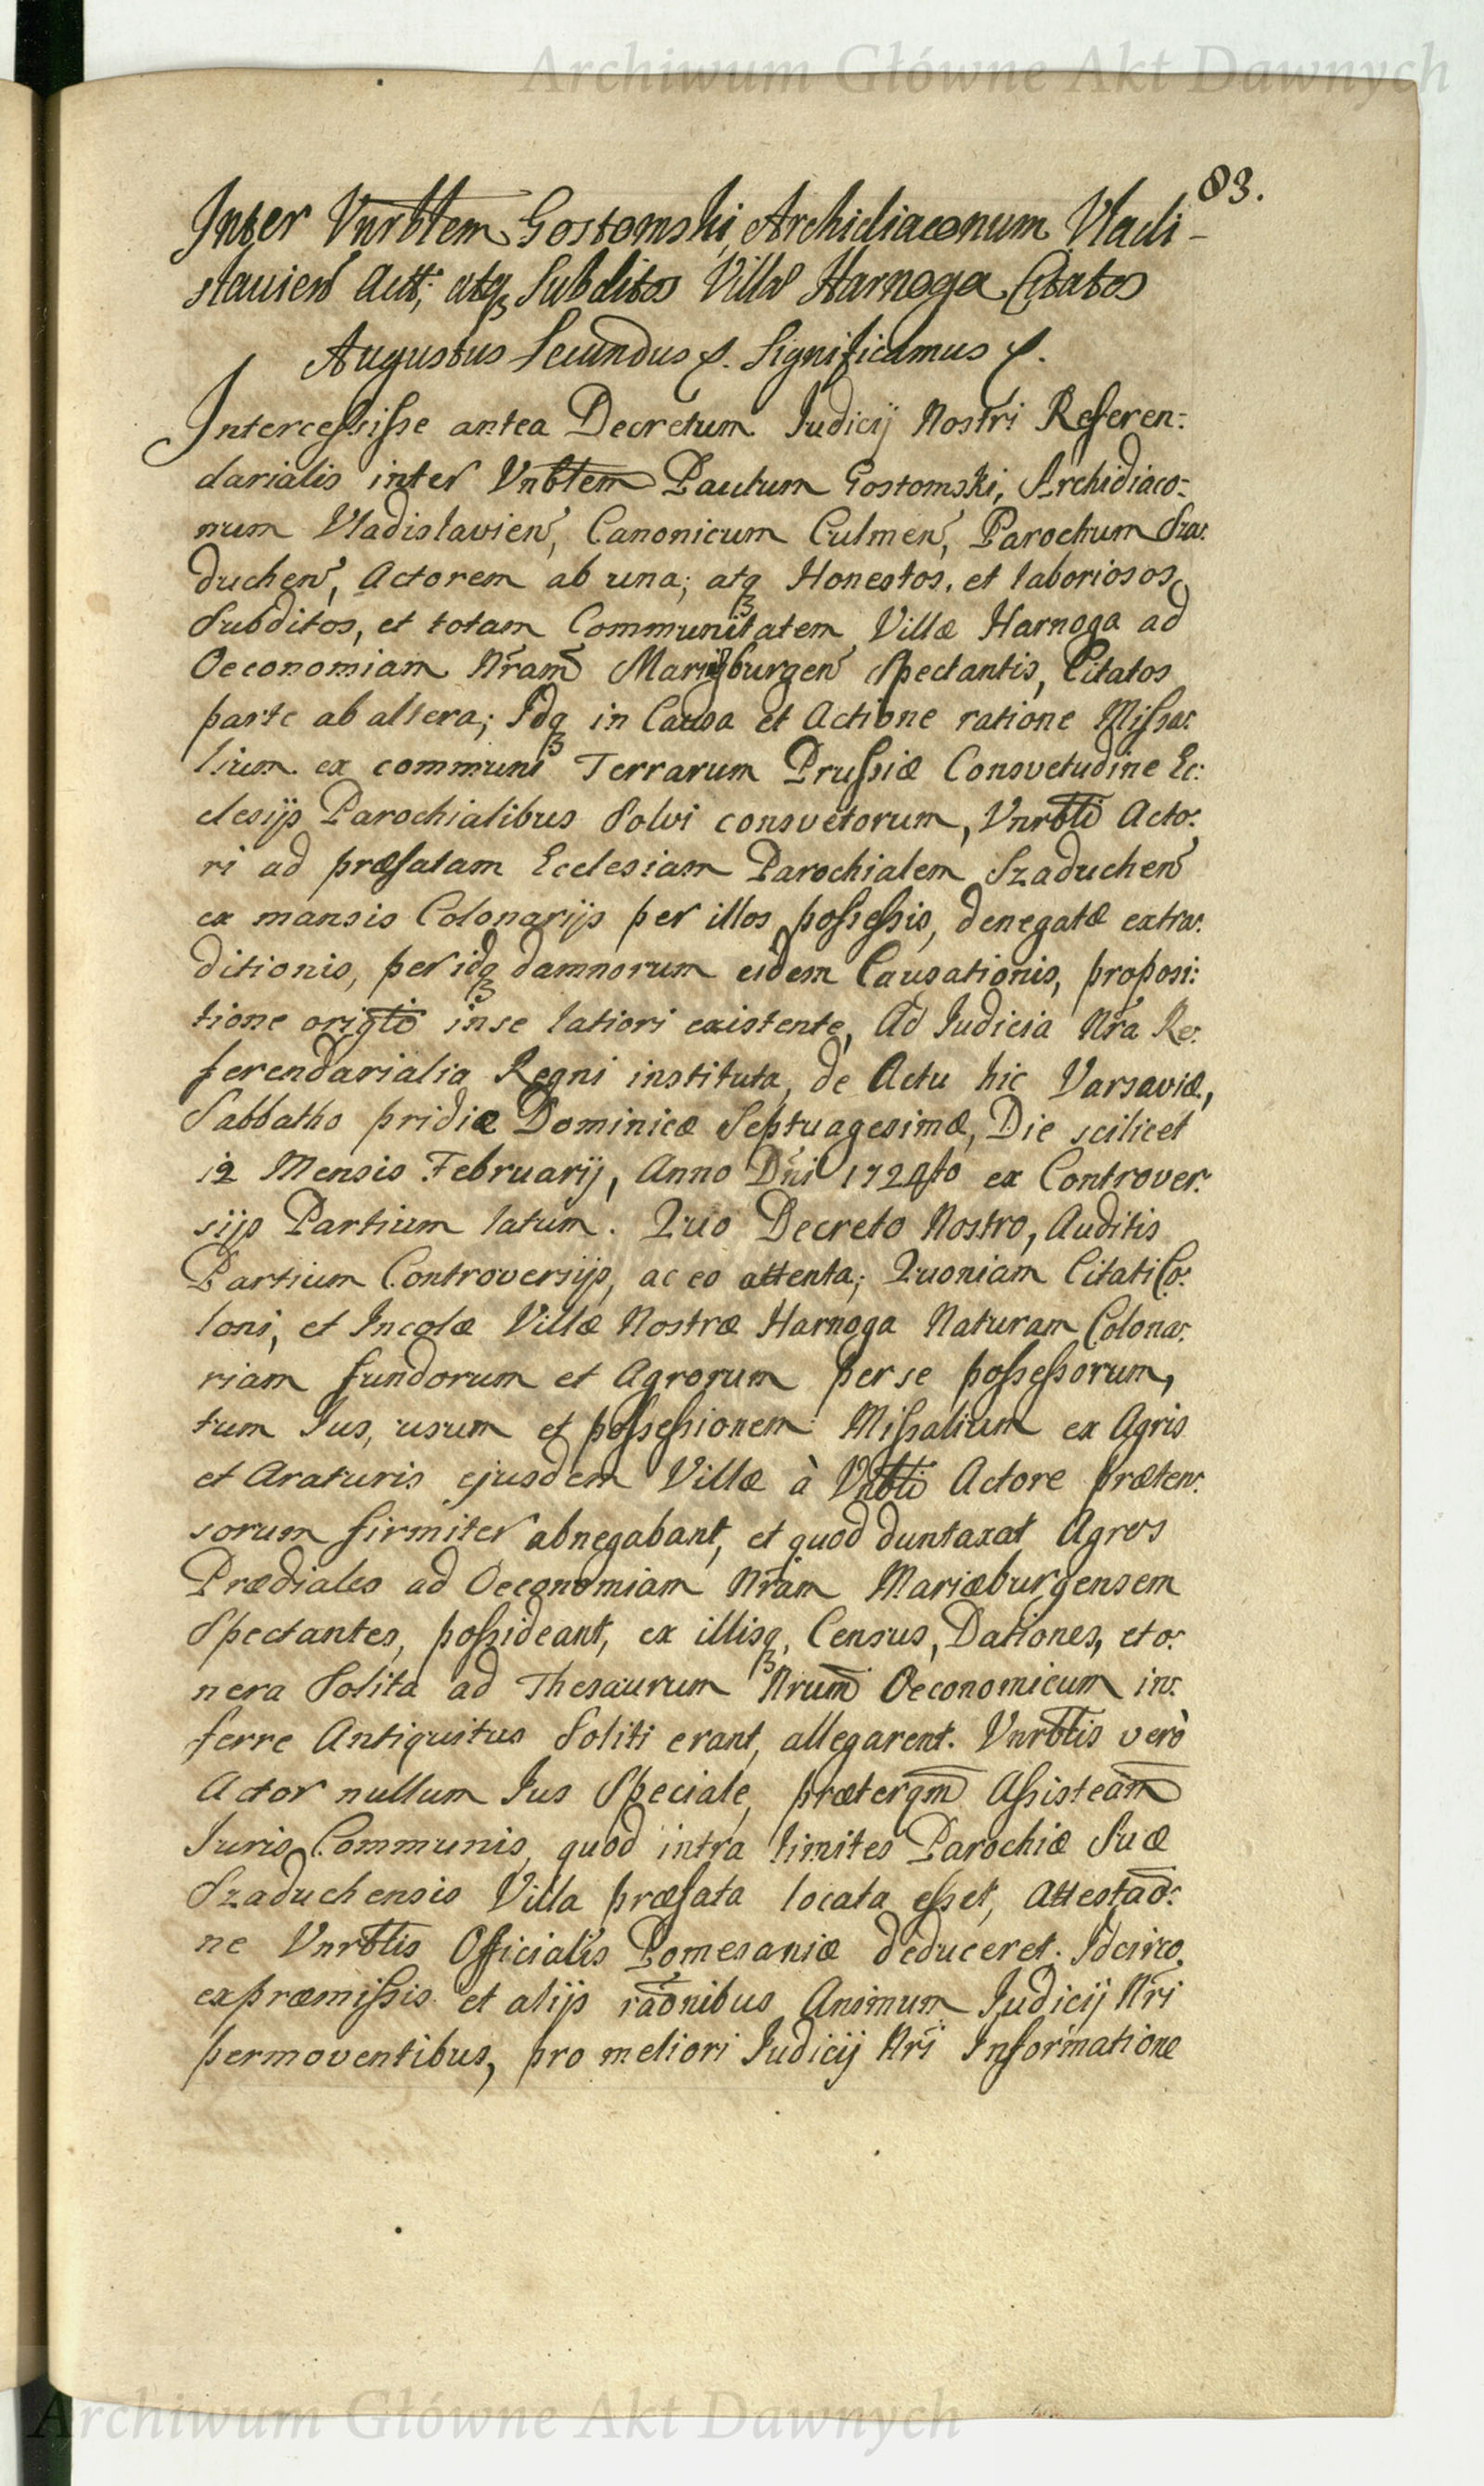 Archiwum Główne Akt Dawnych
83.
Inter Vnrbtem Gostomski Archidiaconum Vladi-
slauien̄ Act: atqꝫ Subditos Villæ Harnoga Citatos
Augustus Secundus &. Significamus &.
Intercessisse antea Decretum Judicij Nostri Referen:
darialis inter Vnbtem Paulum Gostomski, Archidiaco:
num Vladislavien̄, Canonicum Culmen̄, Parochum Sza:
duchen̄, Actorem ab una; atqꝫ Honestos, et laboriosos
Subditos, et totam Communitatem Villæ Harnoga ad
Oeconomiam Nr̃am Mariæburgen̄ Spectantis, Citatos
parte ab altera; Idqꝫ in Causa et Actione ratione Missa:
lium ex communi Terrarum Prussiæ Consvetudine Ec:
clesijs Parochialibus Solvi consvetorum, Vnrbli Acto:
ri ad præfatam Ecclesiam Parochialem Szaduchen̄
ex mansis Colonarijs per illos possessis, denegatæ extra:
ditionis, per idqꝫ damnorum eidem Causationis, proposi:
tione origlĩ in se latiori existente, Ad Judicia Nr̃a Re:
ferendarialia Regni instituta, de Actu hic Varsaviæ,
Sabbatho pridie Dominicæ Septuagesimæ, Die scilicet
12 Mensis Februarij, Anno Dñi 1724to ex Controver:
sijs Partium latum. Quo Decreto Nostro, Auditis
Partium Controversijs, ac eo attenta; Quoniam Citati Co:
loni, et Incolæ Villæ Nostræ Harnoga Naturam Colona:
riam fundorum et Agrorum per se possessorum,
tum Jus, usum et possessionem Missalium ex Agris
et Araturis ejusdem Villæ à Vnbli Actore præten:
sorum firmiter abnegabant, et quod duntaxat Agros
Prædiales ad Oeconomiam Nr̃am Mariæburgensem
Spectantes, possideant, ex illisqꝫ, Census, Dationes, et o:
nera Solita ad Thesaurum Nrum̃ Oeconomicum in:
ferre Antiquitus Soliti erant, allegarent. Vnrblis verò
Actor nullum Jus Speciale, præterqm̃ Assisteãm
Juris Communis, quod intra limites Parochiæ Suæ
Szaduchensis Villa præfata locata esset, Attestaõ:
ne Vnrblis Officialis Pomesaniæ deduceret. Idcirco
ex præmissis et alijs raõnibus Animum Judicij Nr̃i
permoventibus, pro meliori Judicij Nr̃i Informatione
Archiwum Główne Akt Dawnych